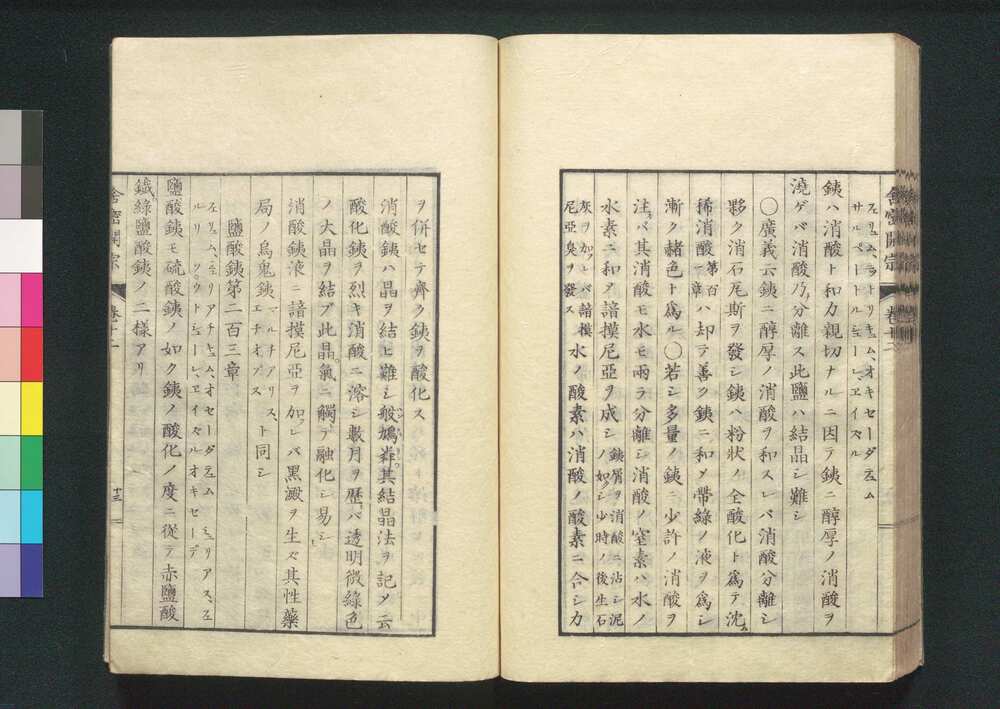 舎密開宗 巻十二
ヱリュム、ラトリキュム、オキセーダテュム
サルペートルシューレ、ヱイズル
銕ハ消酸ト和力親切ナルニ因テ銕ニ醇厚ノ消酸ヲ
澆ゲバ消酸乃分離ス此鹽ハ結晶シ難シ
〇廣義云銕ニ醇厚ノ消酸ヲ和スレバ消酸分離シ
夥ク消石瓦斯ヲ發シ銕ハ粉狀ノ全酸化ト爲テ沈ム
稀消酸第百章ハ却テ善ク銕ニ和メ帶綠ノ液ヲ爲シ
漸ク赭色ト爲ル〇若シ多量ノ銕ニ少許ノ消酸ヲ
注バ其消酸モ水モ兩ラ分離シ消酸ノ窒素ハ水ノ
水素ニ和メ諳摸尼亞ヲ成シ銕屑ヲ消酸ニ沾シ泥ノ如シ少時ノ後生石
灰ヲ加レバ諳摸尼亞臭ヲ發ス水ノ酸素ハ消酸ノ酸素ニ合シ力
ヲ併セテ齊ク銕ヲ酸化ス
消酸銕ハ晶ヲ結ビ難シ般鳩弗其結晶法ヲ記メ云
酸化銕ヲ烈キ消酸ニ溶シ數月ヲ歷バ透明微綠色
ノ大晶ヲ結ブ此晶氣ニ觸テ融化シ易シ
消酸銕液ニ諳摸尼亞ヲ加レバ黑澱ヲ生ズ其性藥
局ノ烏鬼銕マルチアリス、エチオプスト同シ
鹽酸銕第二百三章
ヱリュム、ミュリアチキュム、オセーダテュム ミュリアス、ヱ
ルリ ゾウトシューレ、ヱイズルオキセーデ
鹽酸銕モ硫酸銕ノ如ク銕ノ酸化ノ度ニ從テ赤鹽酸
銕綠鹽酸銕ノ二樣アリ
舎密開宗 巻十二 十三